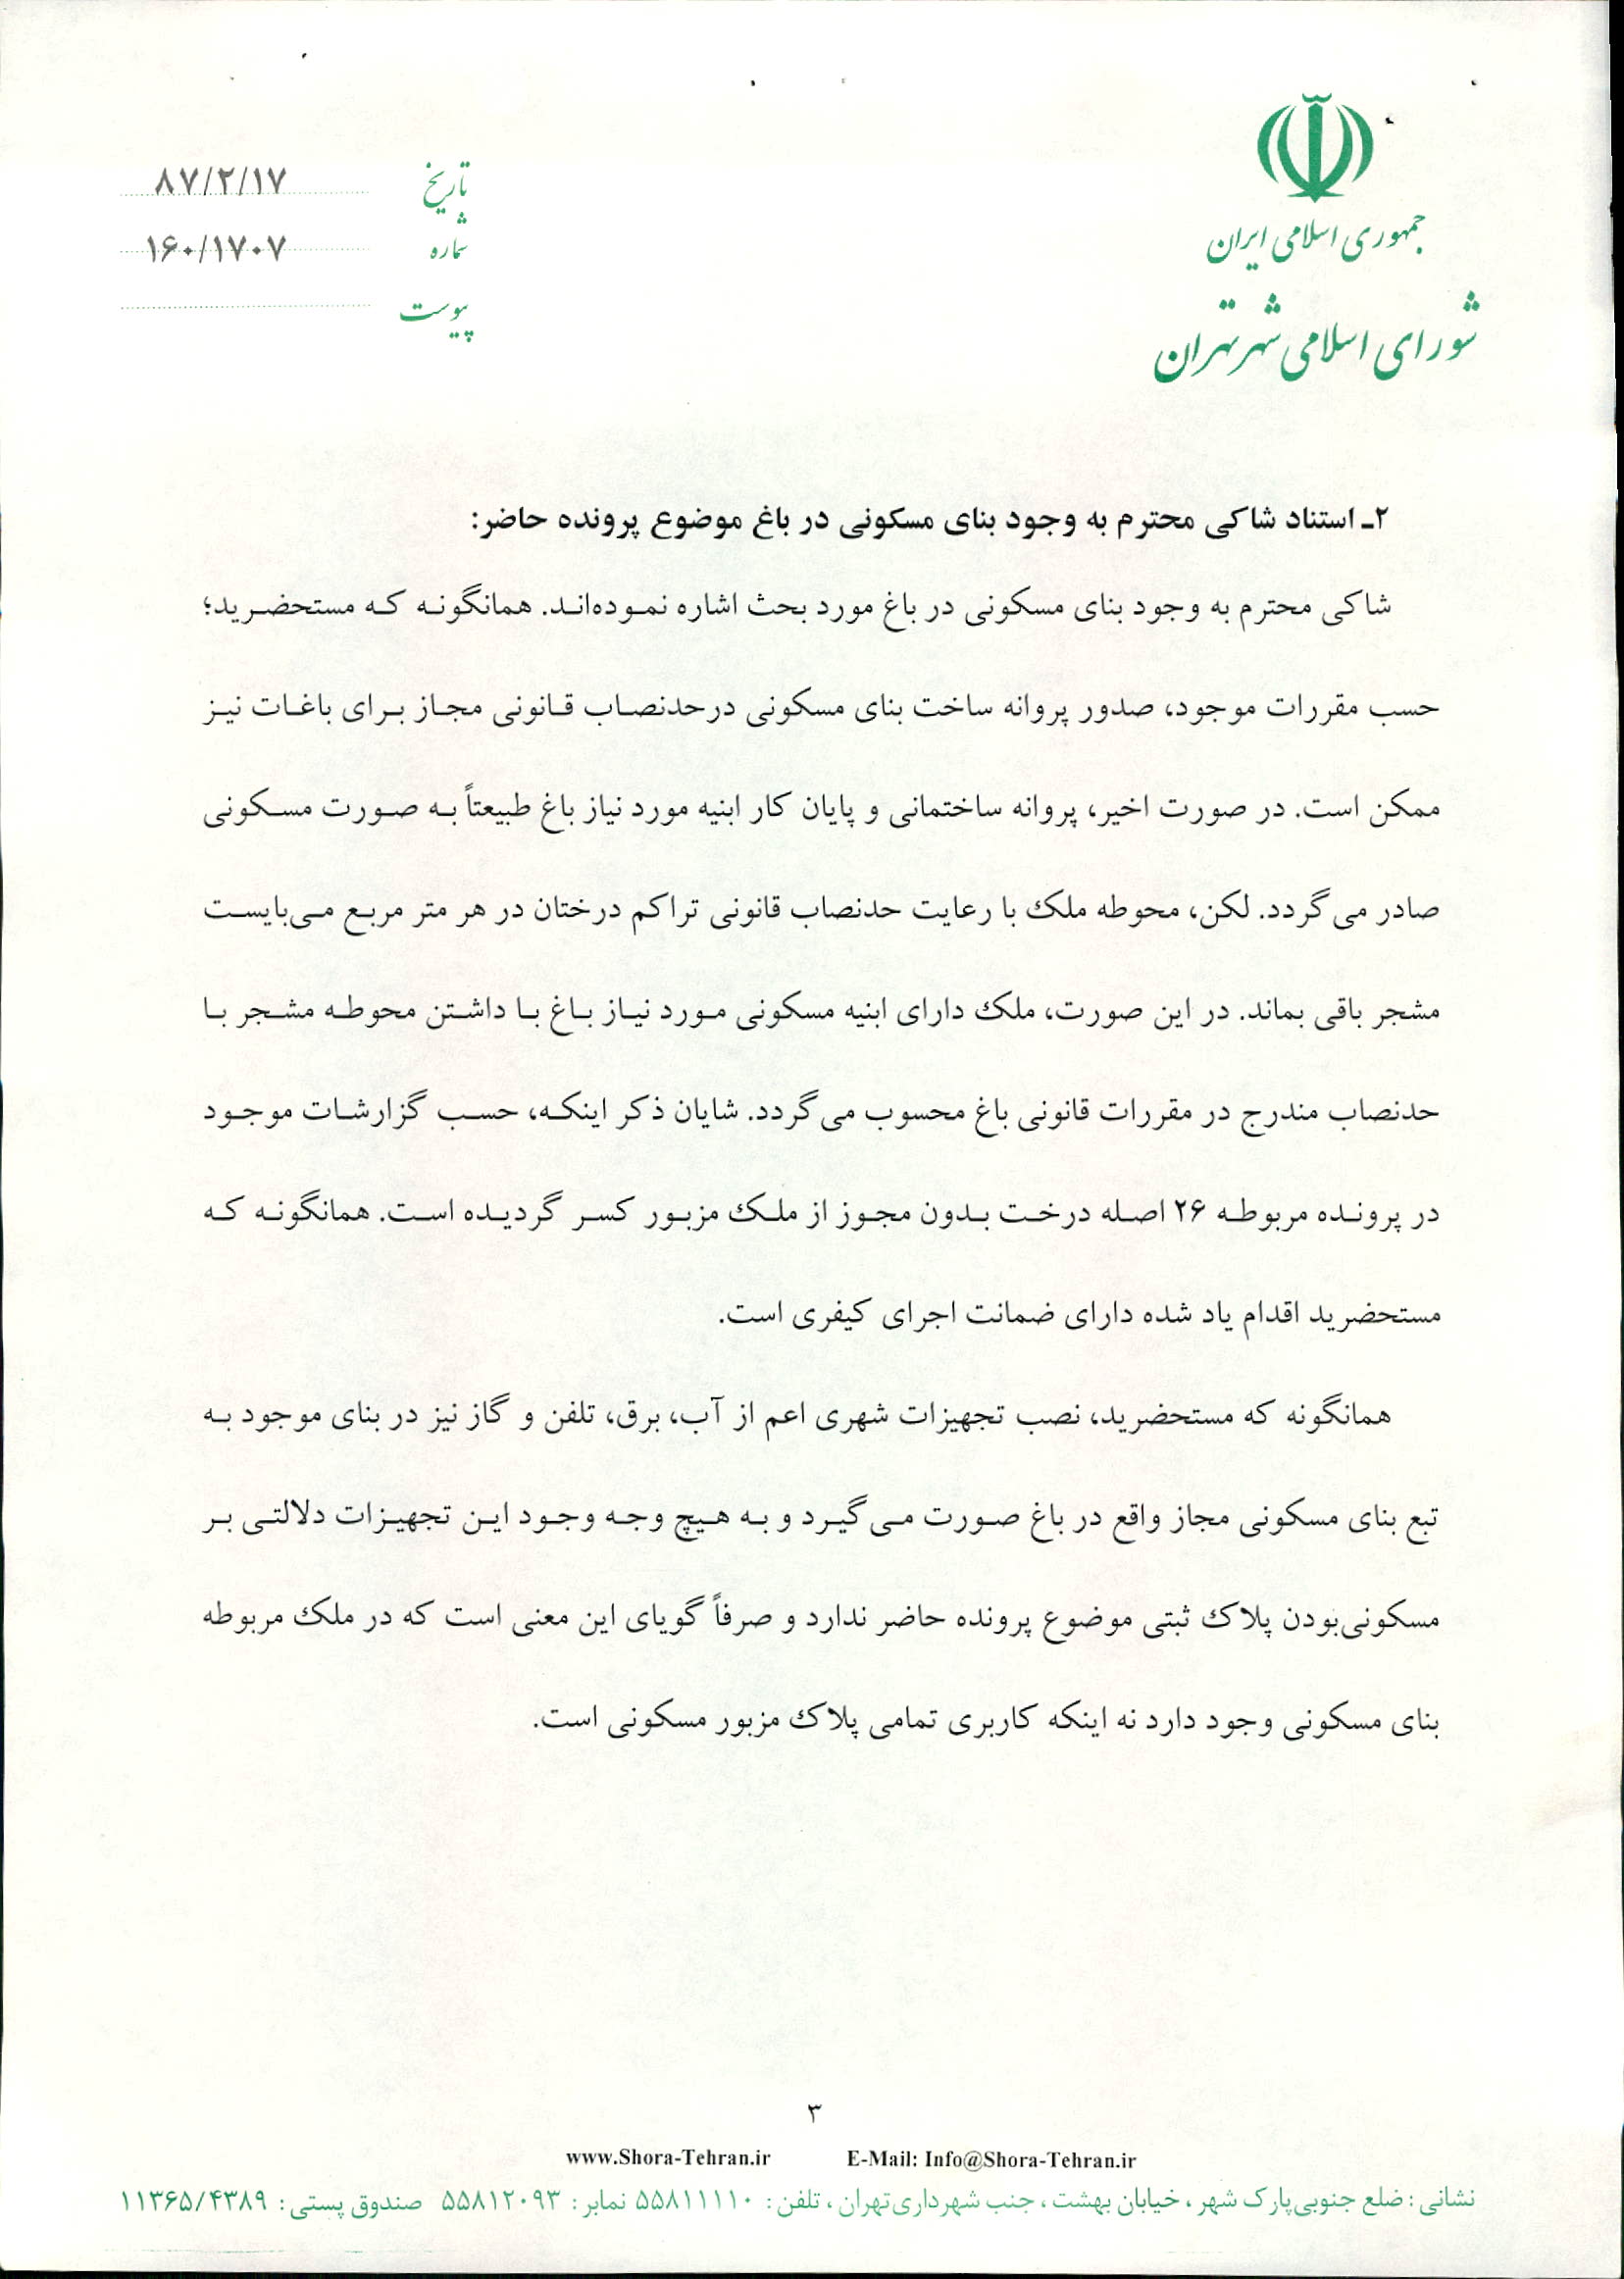 جمهوری اسلامی ایران
شورای اسلامی شهر تهران
تاریخ ۸۷/۲/۱۷
شماره ۱۶۰/۱۷۰۷
پیوست
۲ـ استناد شاکی محترم به وجود بنای مسکونی در باغ موضوع پرونده حاضر:
شاکی محترم به وجود بنای مسکونی در باغ مورد بحث اشاره نموده‌اند. همانگونه که مستحضرید؛
حسب مقررات موجود، صدور پروانه ساخت بنای مسکونی درحدنصاب قانونی مجاز برای باغات نیز
ممکن است. در صورت اخیر، پروانه ساختمانی و پایان کار ابنیه مورد نیاز باغ طبیعتاً به صورت مسکونی
صادر می گردد. لکن، محوطه ملک با رعایت حدنصاب قانونی تراکم درختان در هر متر مربع می‌بایست
مشجر باقی بماند. در این صورت، ملک دارای ابنیه مسکونی مورد نیاز باغ با داشتن محوطه مشجر با
حدنصاب مندرج در مقررات قانونی باغ محسوب می گردد. شایان ذکر اینکه، حسب گزارشات موجود
در پرونده مربوطه ۲۶ اصله درخت بدون مجوز از ملک مزبور کسر گردیده است. همانگونه که
مستحضرید اقدام یاد شده دارای ضمانت اجرای کیفری است.
همانگونه که مستحضرید، نصب تجهیزات شهری اعم از آب، برق، تلفن و گاز نیز در بنای موجود به
تبع بنای مسکونی مجاز واقع در باغ صورت می گیرد و به هیچ وجه وجود این تجهیزات دلالتی بر
مسکونی‌بودن پلاک ثبتی موضوع پرونده حاضر ندارد و صرفاً گویای این معنی است که در ملک مربوطه
بنای مسکونی وجود دارد نه اینکه کاربری تمامی پلاک مزبور مسکونی است.
۳
www.Shora-Tehran.ir E-Mail: Info@Shora-Tehran.ir
نشانی : ضلع جنوبی پارک شهر ، خیابان بهشت ، جنب شهرداری تهران ، تلفن : ۵۵۸۱۱۱۱۰ نمابر : ۵۵۸۱۲۰۹۳ صندوق پستی : ۱۱۳۶۵/۴۳۸۹